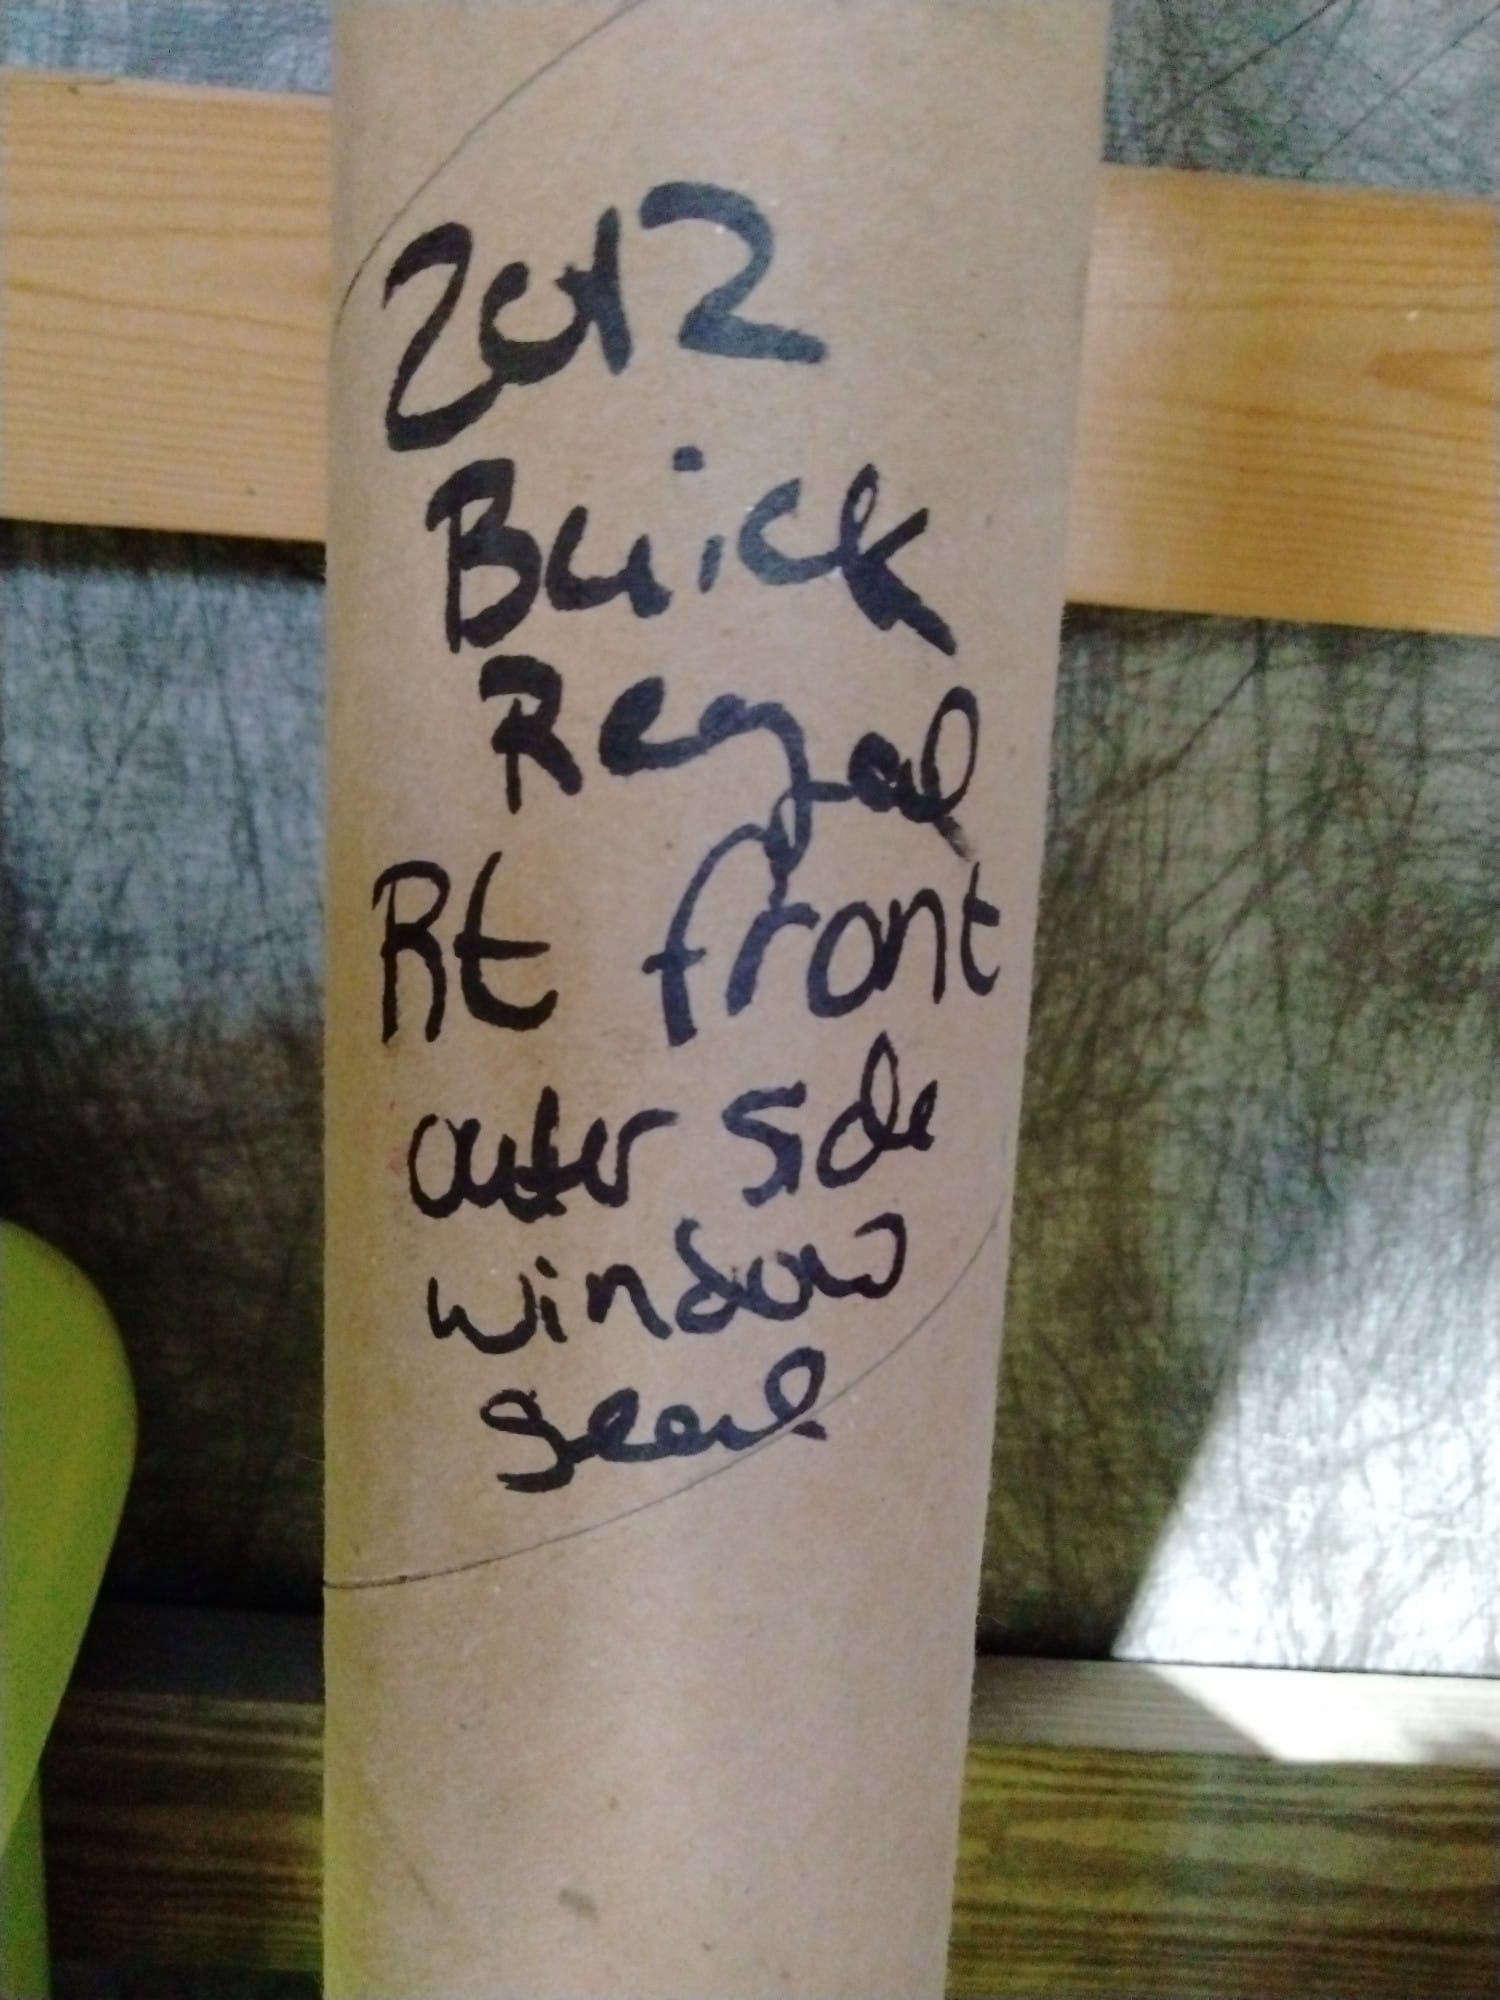 2012
Buick
Regal
Rt front
outer side
window
seal